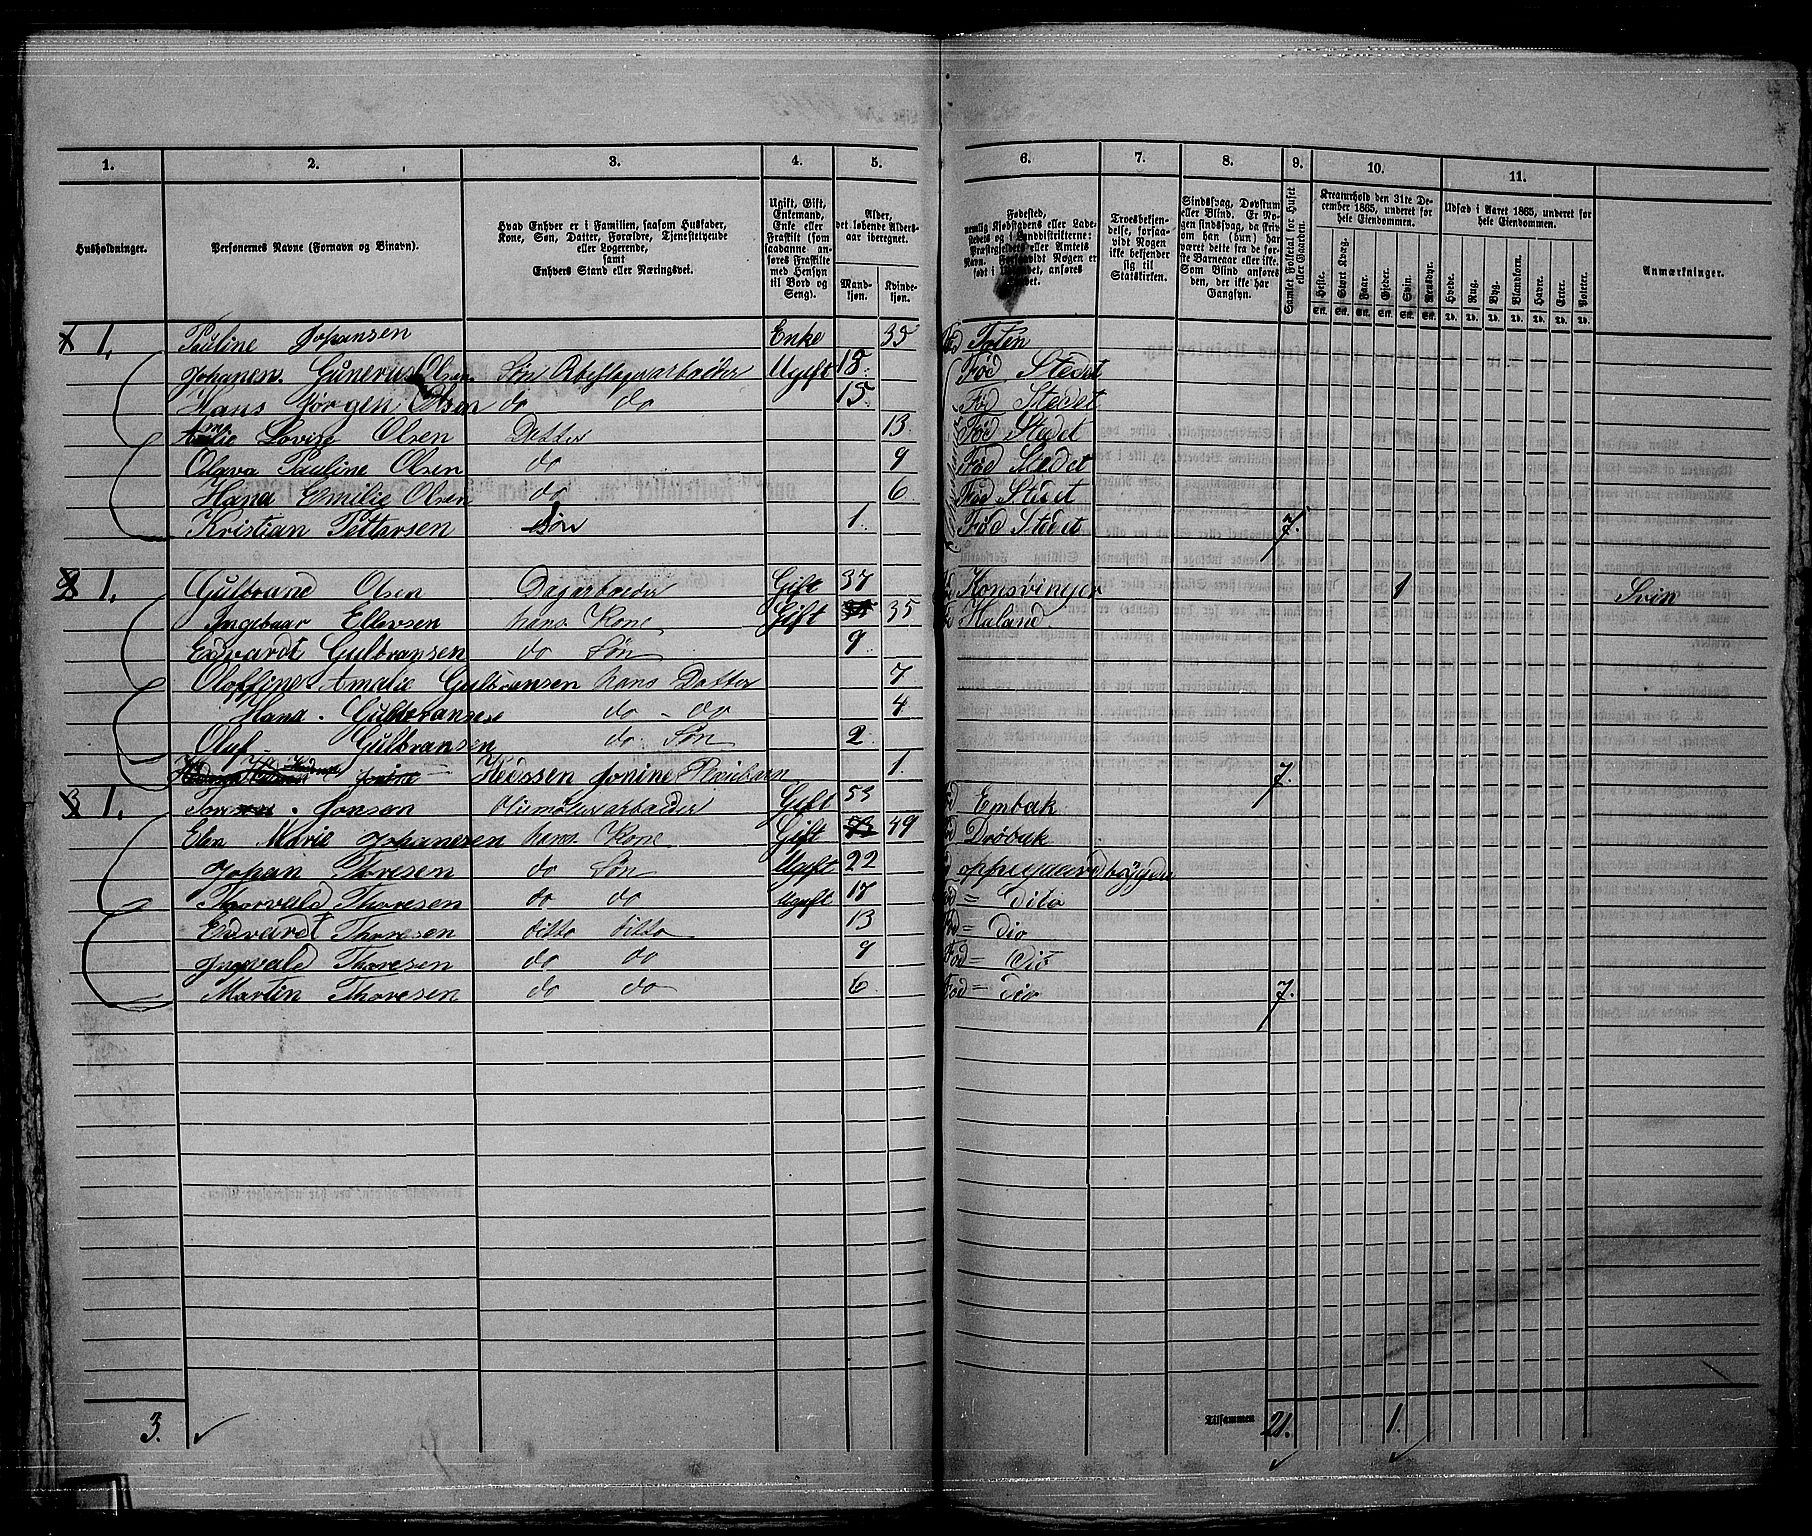 1. 2. 3. 4. 5. 6. 7. 8. 9. 10. 11.
Husholdninger.
Personernes Navne (Fornavn og Binavn).
Hvad Enhver er i Familien, saasom Husfader,
Kone, Søn, Datter, Forældre, Tjenestetyende
eller Logerende,
samt
Enhvers Stand eller Næringsvei.
Ugift, Gift,
Enkemand,
Enke eller
Fraskilt (som
saadanne an-
føres Fraskilte
med Hensyn
til Bord og
Seng).
Alder,
det løbende Alders-
aar iberegnet.
Mand-
kjøn.
Kvinde-
kjøn.
Fødested,
nemlig Kjøbstadens eller Lade-
stedets og i Landdistrikterne:
Præstegjeldets eller Amtets
Navn. Forsaavidt Nogen er
født i Udlandet, anføres
Troesbekjen-
delse, forsaa-
vidt Nogen
ikke bekjender
sig til
Statskirken.
Sindssvag, Døvstum
eller Blind. Er No-
gen sindssvag, da skriv
om han (hun) har
været dette fra de før-
ste Barneaar eller ikke.
Som Blind ansøres
den, der ikke har
Gangsyn.
Samlet Folketal for Huset
eller Gaarden.
Kreaturhold den 31te De-
cember 1865, underet for
hele Eiendommen.
Heste. Stort Kvæg. Faar. Gjeder. Svin. Rensdyr.
Udsæd i Aaret 1865, underet for
hele Eiendommen.
Hvede. Rug. Byg. Blandkorn. Havre. Erter. Poteter.
Anmærkninger.
1. Pauline Johansen Enke 35 Toten
Johanes. Gunerius Olsen. Søn Ugift 18. Fød Stedet
Hans Jørgen Olsen do do 15. Fød Stedet
Amalie Lovise Olsen Datter 13. Fød Stedet
Olava Pauline Olsen do 9 Fød Stedet
Hana Emilie Olsen do 6. Fød Stedet
Kristian Pettersen Søn 1. Fød Stedet 7.
1. Gulbrand Olsen Dagarbeider Gift 37 Konsvinger 1 Svin
Ingebaar Ellevsen hans Kone Gift 35 Haland
Edvardt Gulbransen do Søn 9
Oloffine Amalie Gulbransen hans Datter 7
Hana. Gulbransen do - do 4.
Oluf Gulbransen do Søn 2.
Jonine Pleiebarn 1. 7.
1. Jonson Oliemøllearbeider Gift 53 Embak
Elen Marie Johanesen hans Kone Gift 49 Drøbak
Johan Thoresen do Søn Ugift 22
Thorvald Thoresen do do Ugift 17 = Dito
Edvardt Thoresen ditto ditto 13 Fød = Dio
Ingvald Thoresen do do 9 Fød = Dio
Martin Thoresen do do 6. Fød = Dio 7.
3. Tilsammen 21. 1.